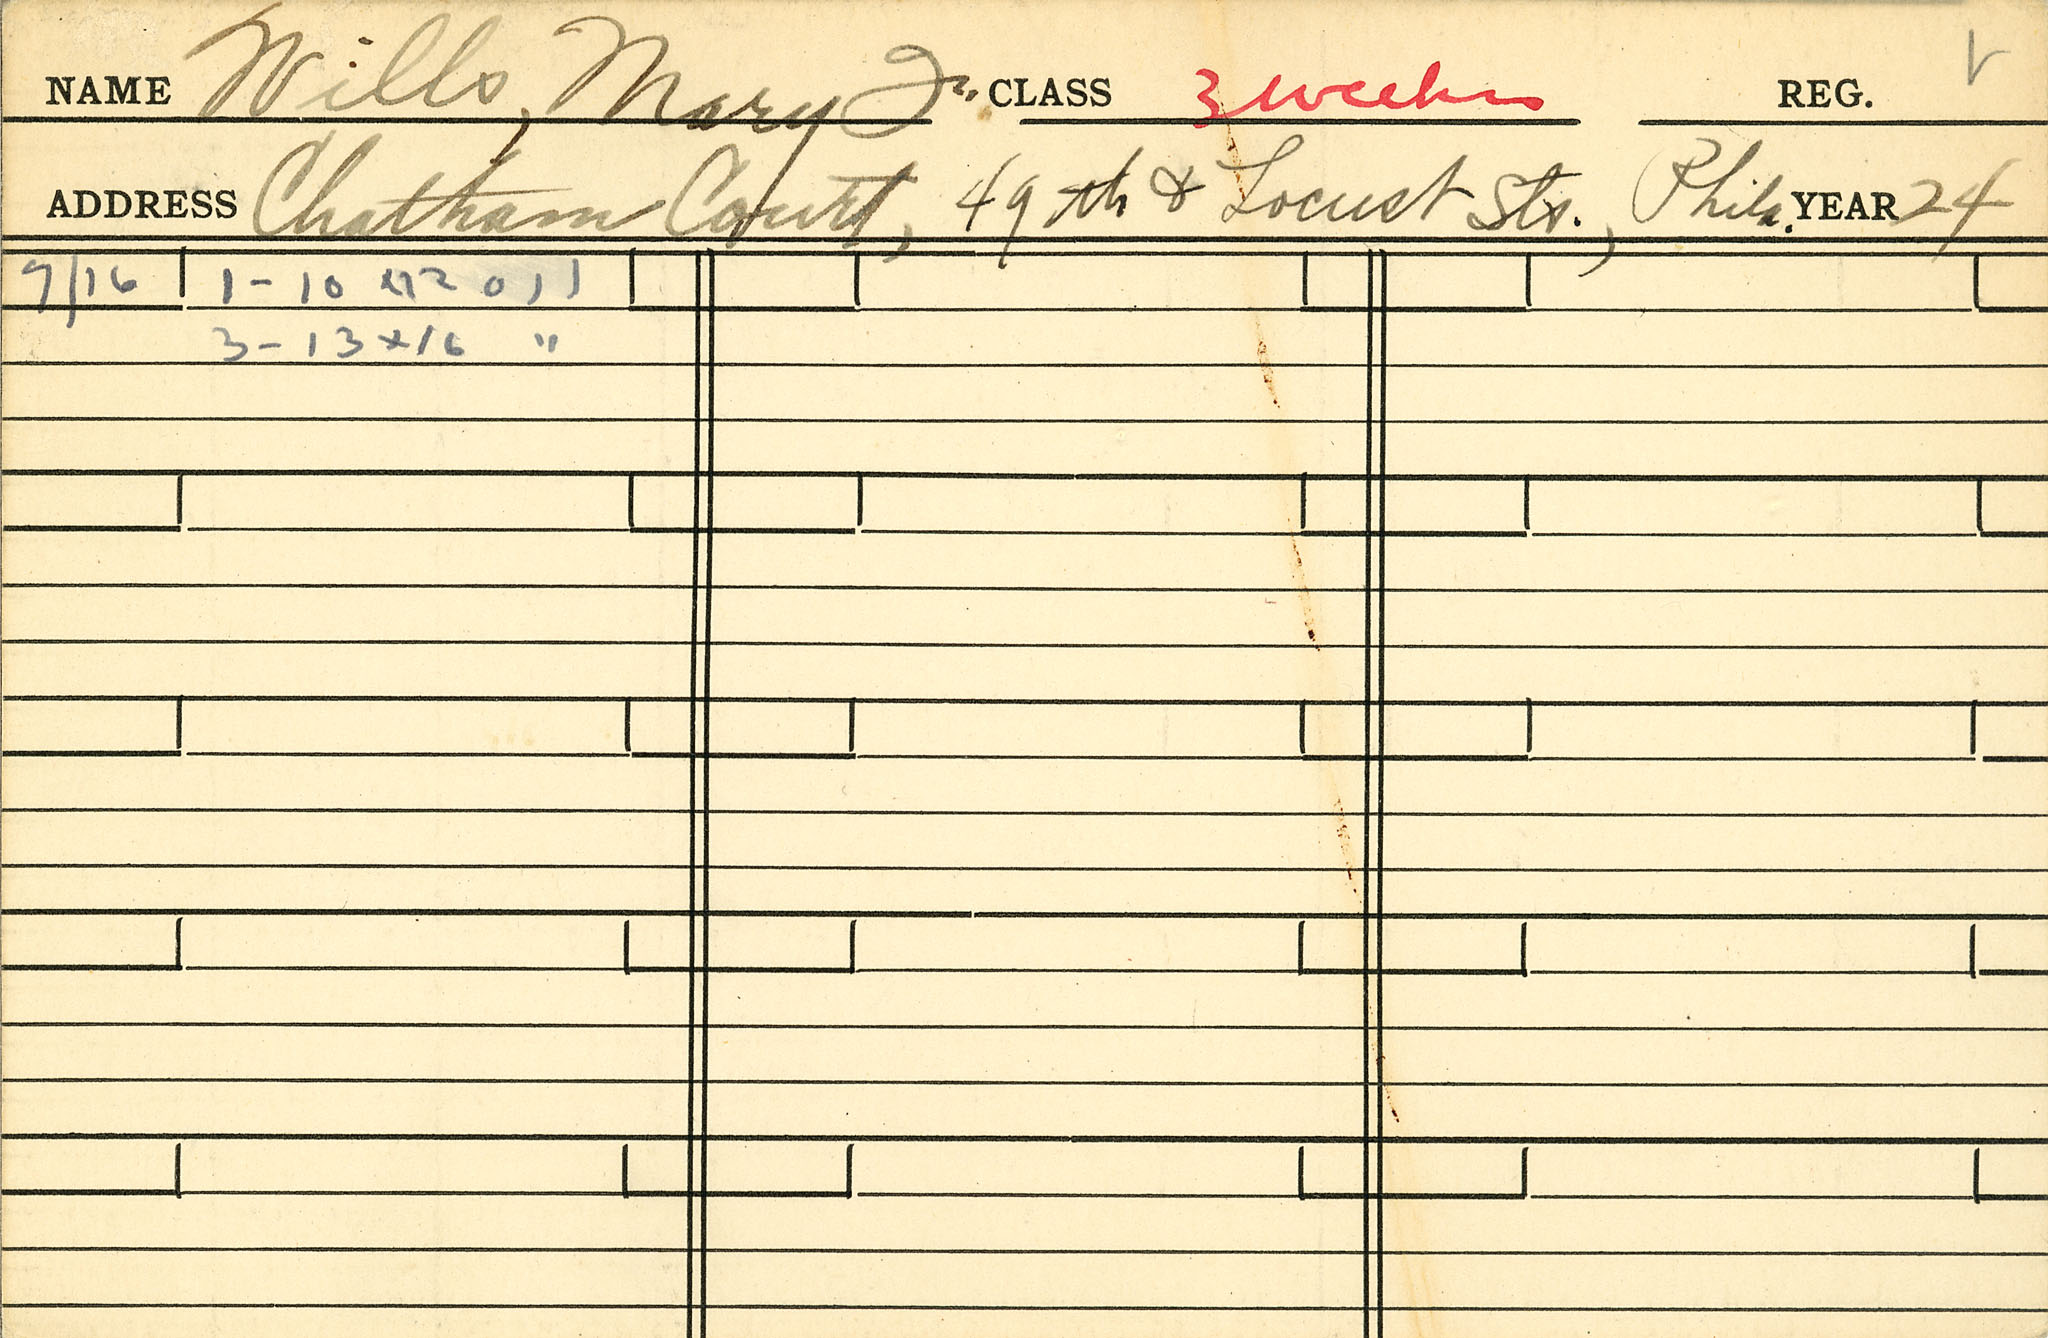 NAME Wills, Mary Jr. CLASS 3 weeks REG. V
ADDRESS Chatham Court, 49th & Locust Sts., Phila. YEAR 24
7/16 1-10 x 12 oil
3-13 x 16 "